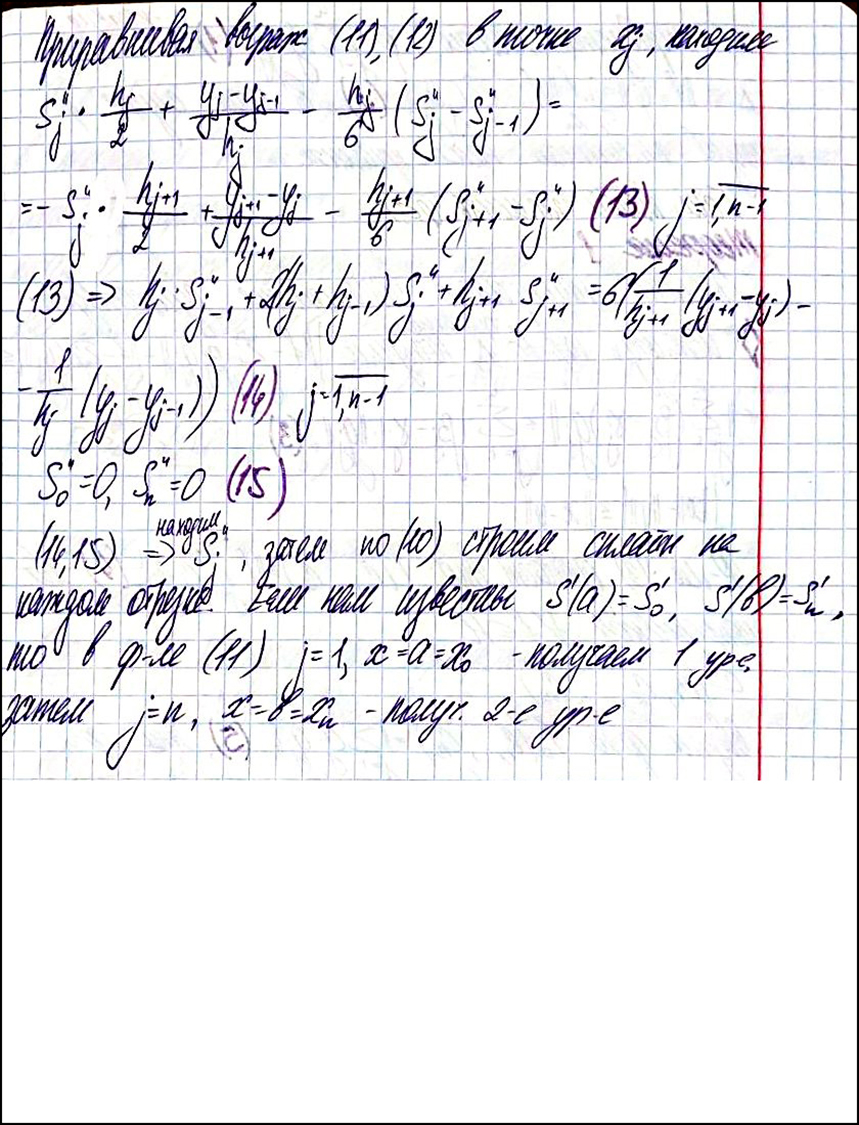 Приравнивая выраж (11), (12) в точке xj, находим
S''j · hj/2 + (yj - yj-1)/hj - hj/6 (S''j - S''j-1) =
= - S''j · hj+1/2 + (yj+1 - yj)/hj+1 - hj+1/6 (S''j+1 - S''j) (13) j = 1, n-1
(13) => hj · S''j-1 + 2(hj + hj-1) S''j + hj+1 S''j+1 = 6(1/hj+1 (yj+1 - yj) -
- 1/hj (yj - yj-1)) (14) j = 1, n-1
S''0 = 0, S''n = 0 (15)
(14,15) находим => S''j, затем по (10) строим сплайн на
каждом отрезке. Если нам известны S'(a) = S'0, S'(b) = S'n,
то в ф-ле (11) j = 1, x = a = x0 - получаем 1 ур-е,
затем j = n, x = b = xn - получ. 2-е ур-е